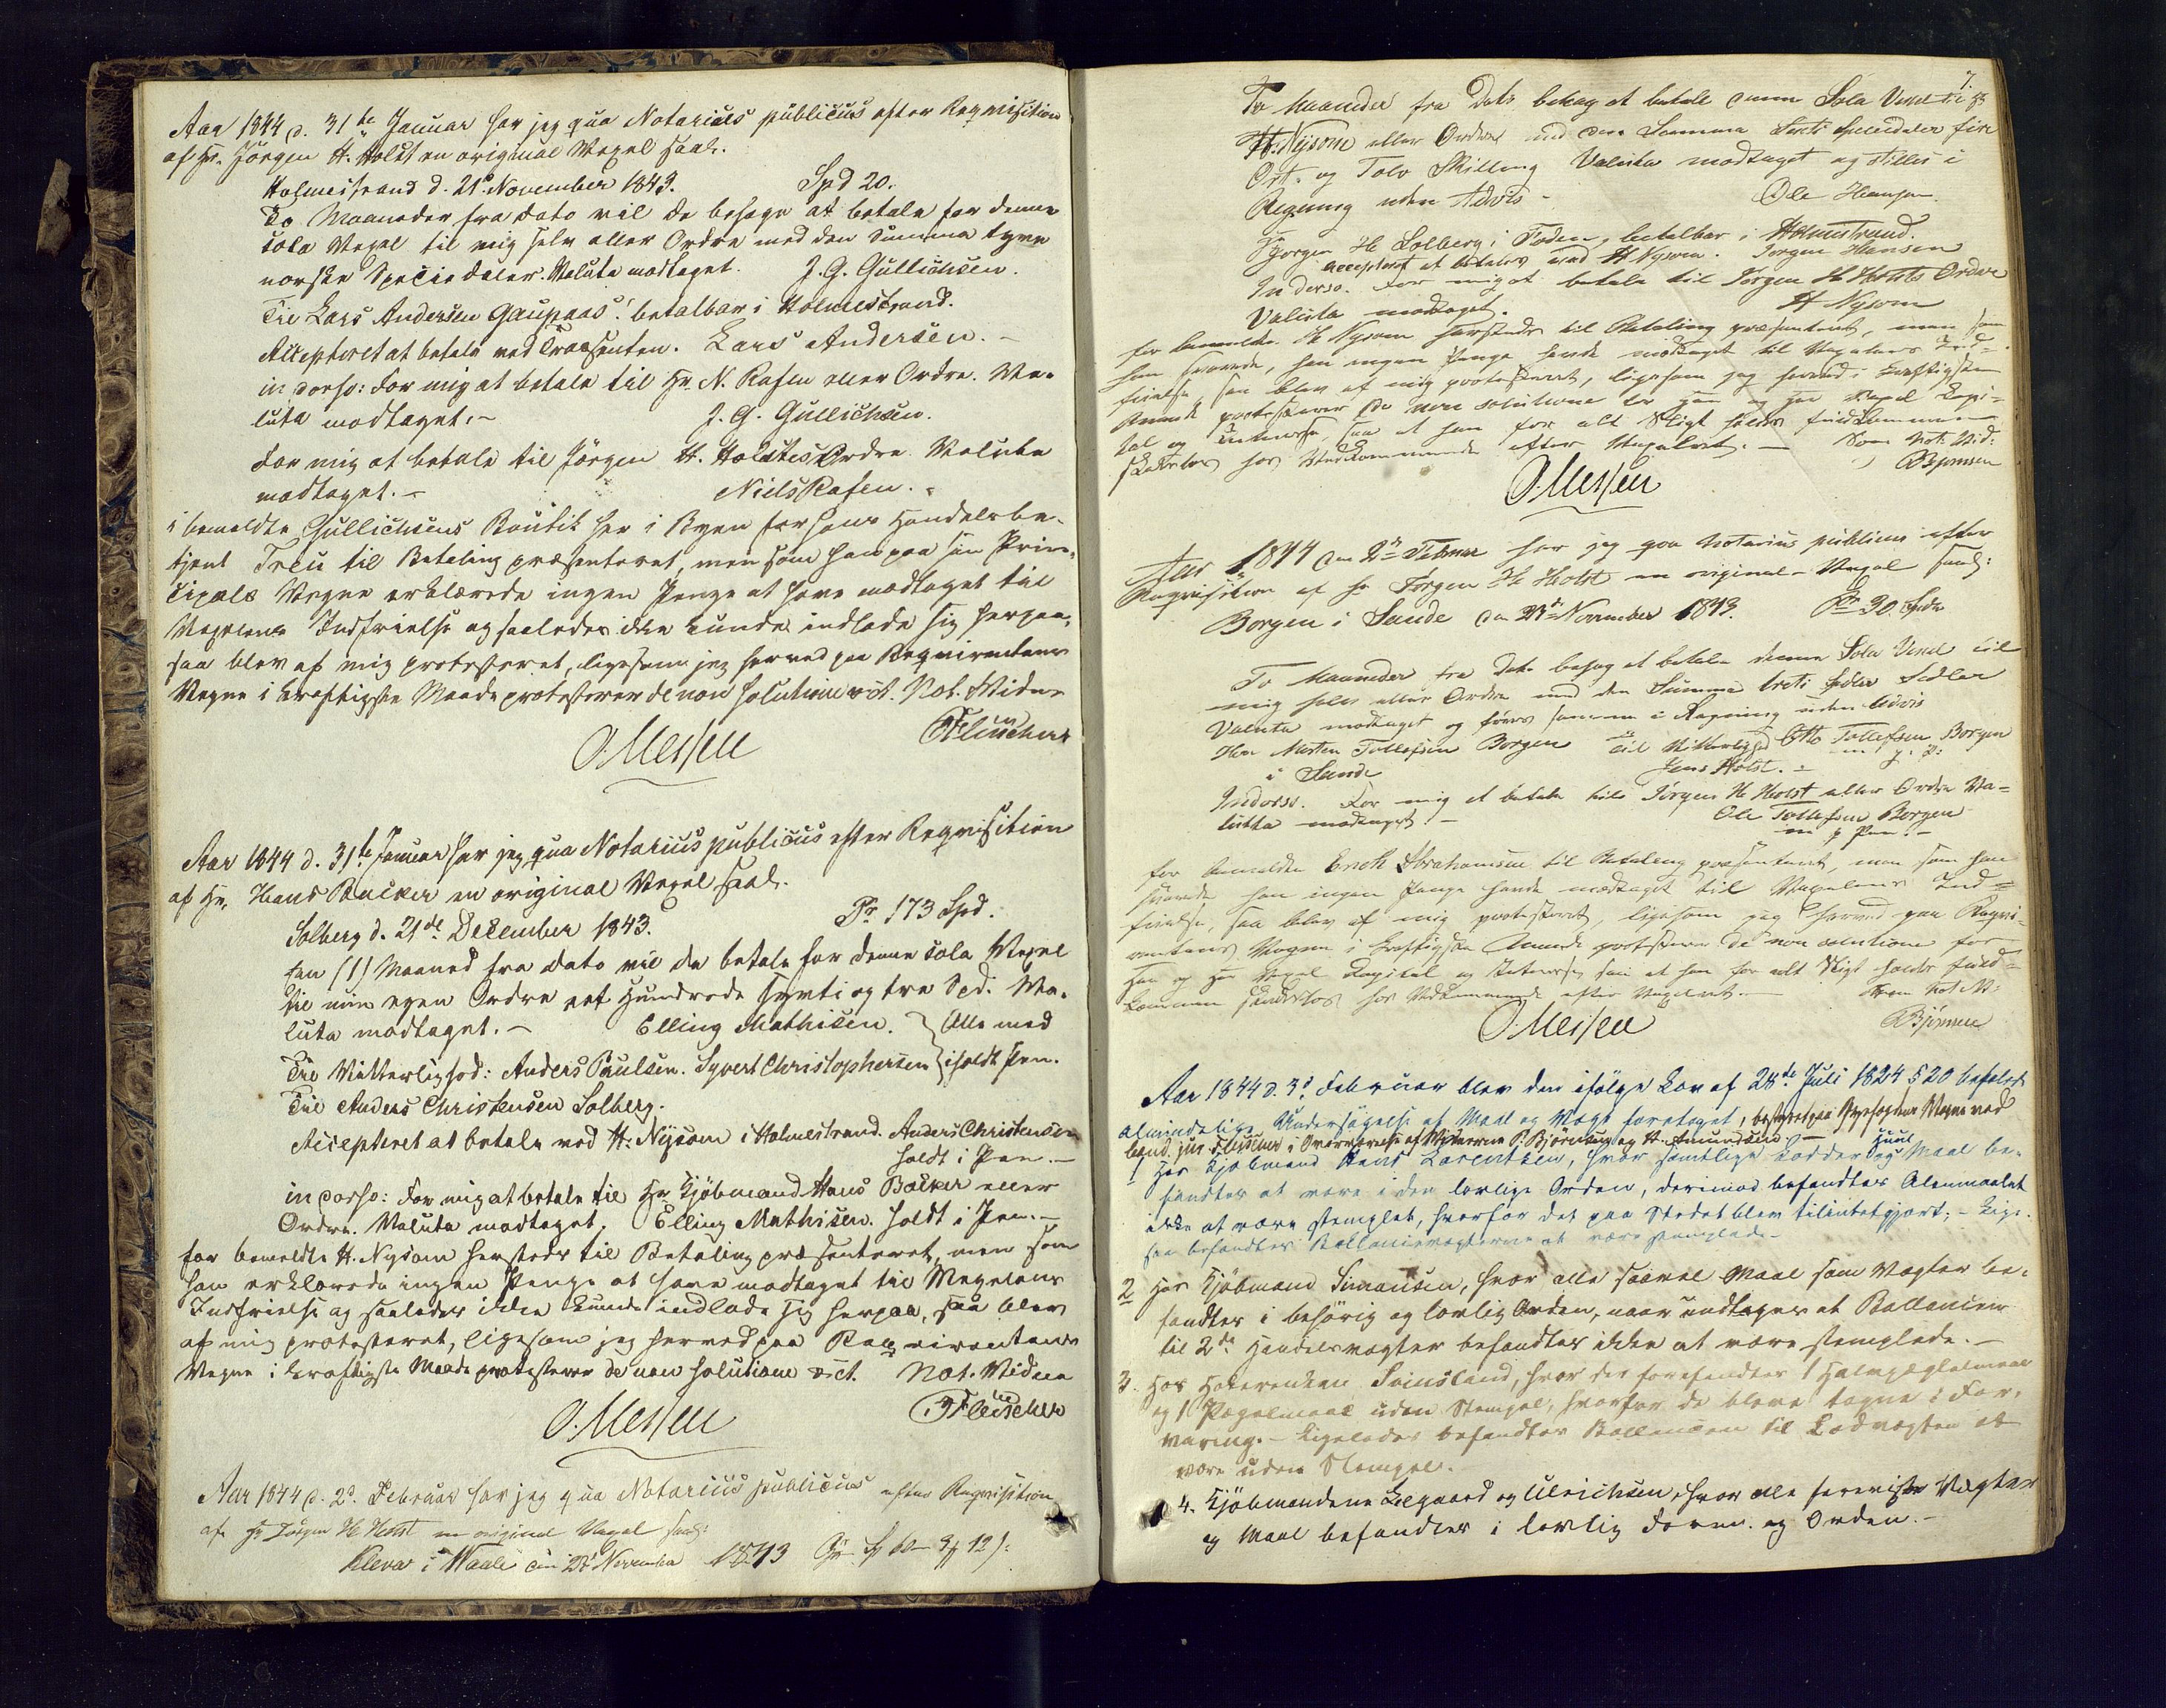 Aar 1844 d. 31te Januar har jeg qua Notarius publicus efter Requisition
af Hr. Jörgen H. Holst en original Vexel saal.
Holmestrand d. 21de November 1843. Spd 20.
To Maaneder fra dato vil de behage at betale for denne
sola Vexel til mig selv eller Ordre med den Summa tyve
norske Speciedaler. Valuta modtaget. J. G. Gullichsen.
Til Lars Andersen Gaupaas! betalbar i Holmestrand.
Accepteret at betale ved Trassenten. Lars Andersen. -
in dorso: For mig at betale til Hr. N. Rafen eller Ordre. Va-
luta modtaget. - J. G. Gullichsen.
For mig at betale til Jörgen H. Holstes Ordre. Valuta
modtaget. - Niels Rafen.
i bemeldte Gullichsens Boutik her i Byen for hans Handelsbe-
tjent Treu til Betaling præsenteret, men som han paa sin Prin-
cipals Vegne erklærede ingen Penge at have modtaget til
Vexelens Indfrielse og saaledes ikke kunde indlade sig herpaa,
saa blev af mig protesteret, ligesom jeg herved paa Requirentens
Vegne i kraftigste Maade protesterer de non solutione &ct. Not. Vidne
O. Messell Fleischer
Aar 1844 d. 31te Januar har jeg qua Notarius publicus efter Requisition
af Hr. Hans Backer en original Vexel saal.
Solberg d. 21de December 1843. Pr. 173 Spd.
een (1) Maaned fra dato vil de betale for denne sola Vexel
til min egen Ordre eet Hundrede Sytti og tre Spd. Va-
luta modtaget. - Elling Mathisen. Alle med
Til Vitterlighed: Anders Paulsen. Syvert Christophersen iholdt Pen.
Til Anders Christensen Solberg.
Accepteret at betale ved H. Nysom i Holmestrand. Anders Christensen
holdt i Pen. -
in dorso: For mig at betale til Hr Kjöbmand Hans Backer eller
Ordre. Valuta modtaget. Elling Mathisen. holdt i Pen. -
for bemeldte H. Nysom hersteds til Betaling præsenteret, men som
han erklærede ingen Penge at have modtaget til Vexelens
Indfrielse og saaledes ikke kunde indlade sig herpaa, saa blev
af mig protesteret, ligesom jeg herved paa Requirentens
Vegne i kraftigste Maade protesterer de non solutione &ct. Not. Vidne
O. Messell Fleischer
Aar 1844 d. 2d. Februar har jeg qua Notarius publicus efter Requisition
af Hr Jörgen H Holst en original Vexel saal:
Kleva i Waale den November 1843
7.
To Maaneder fra Dato behag at betale denne Sola Vexel til Hr
H. Nysom eller Ordre med den Summa Spesiedaler fire
Ort. og Tolv Skilling Valuta modtaget og stilles i
Regning uden Advis - Ole Hansen
Hr Jörgen H Solberg i Foden, betalbar i Holmestrand.
Accepteret at betales ved H Nysom. Jorgen Hansen
In dorso. For mig at betale til Jörgen H Holsts Ordre
Valuta modtaget. H Nysom
for bemeldte H Nysom hersteds til Betaling præsenteret, men som
han svarede, han ingen Penge havde modtaget til Vexelens Ind-
frielse, saa blev af mig protesteret, ligesom jeg herved i kraftigste
Maade protesterer de non solutione for Vexel Kapi-
tal og Interesse, saa at han for alt Sligt holdes
skadeslös hos Vedkommende efter Vexelret. - Som Not: Vid:
O. Messell Björnsen
Aar 1844 den 2de Februar har jeg qua Notarius publicus efter
Requisition af Hr Jörgen H Holst en original Vexel saal:
Borgen i Sande den November 1843. Pr 30 Spdr
To Maaneder fra Dato behag at betale denne Sola Vexel til
mig selv eller Ordre med den Summa treti Spdlr Sedler
Valuta modtaget og föres samme i Regning uden Advis
Herr Morten Tollefsen Borgen Til Vitterlighed Ole Tollefsen Borgen
i Sande Jens Holst. - m. f. P:
Indorso. For mig at betale til Jörgen H Holst eller Ordre Va-
lutta modtaget - Ole Tollefsen Borgen
m f Pen: -
for bemeldte Erick Abrahamsen til Betaling præsenteret, men som han
svarede han ingen Penge havde modtaget til Vexelens Ind-
frielse, saa blev af mig protesteret, ligesom jeg herved paa Requi-
rentens Vegne i kraftigste Maade protesterer de non solutione for
Vexel Kapital og Interesse, saa at han for alt Sligt holdes
skadeslös hos Vedkommende efter Vexelret. - Som Not. V:
O. Messell Björnsen
Aar 1844 d. 3d Februar blev den ifölge Lov af 28de Juli 1824 § 20 befalede
almindelige Undersögelse af Maal og Vægt foretaget, Vegne ved
i Overværelse af Vidnerne P. Björnsen og H. Amundsen. -
1 Hos Kjöbmand Hans Lorentzen, hvor samtlige Lodder og Maal be-
fandtes at være i den lovlige Orden, derimod befandtes Alenmaalet
ikke at være stemplet, hvorfor det paa Stedet blev tilintetgjort; - Lige-
saa befandtes Ballancevægterne at være stemplede -
2 Hos Kjöbmand Simensen, hvor alle saavel Maal som Vægter be-
fandtes i behörig og lovlig Orden, naar undtages at Ballancen
til 2de Handelsvægter befandtes ikke at være stemplede. -
3. Hos Hökerenken Svinsland, hvor der forefandtes 1 Halvpæglemaal
og 1 Pægelmaal uden Stempel, hvorfor de bleve tagne i For-
varing. - Ligeledes befandtes Ballancen til Lodvægten at
være uden Stempel.
4. Kjöbmændene Lægaard og Ulrichsen, hvor alle foreviste Vægter
og Maal befandtes i lovlig Form. og Orden. -